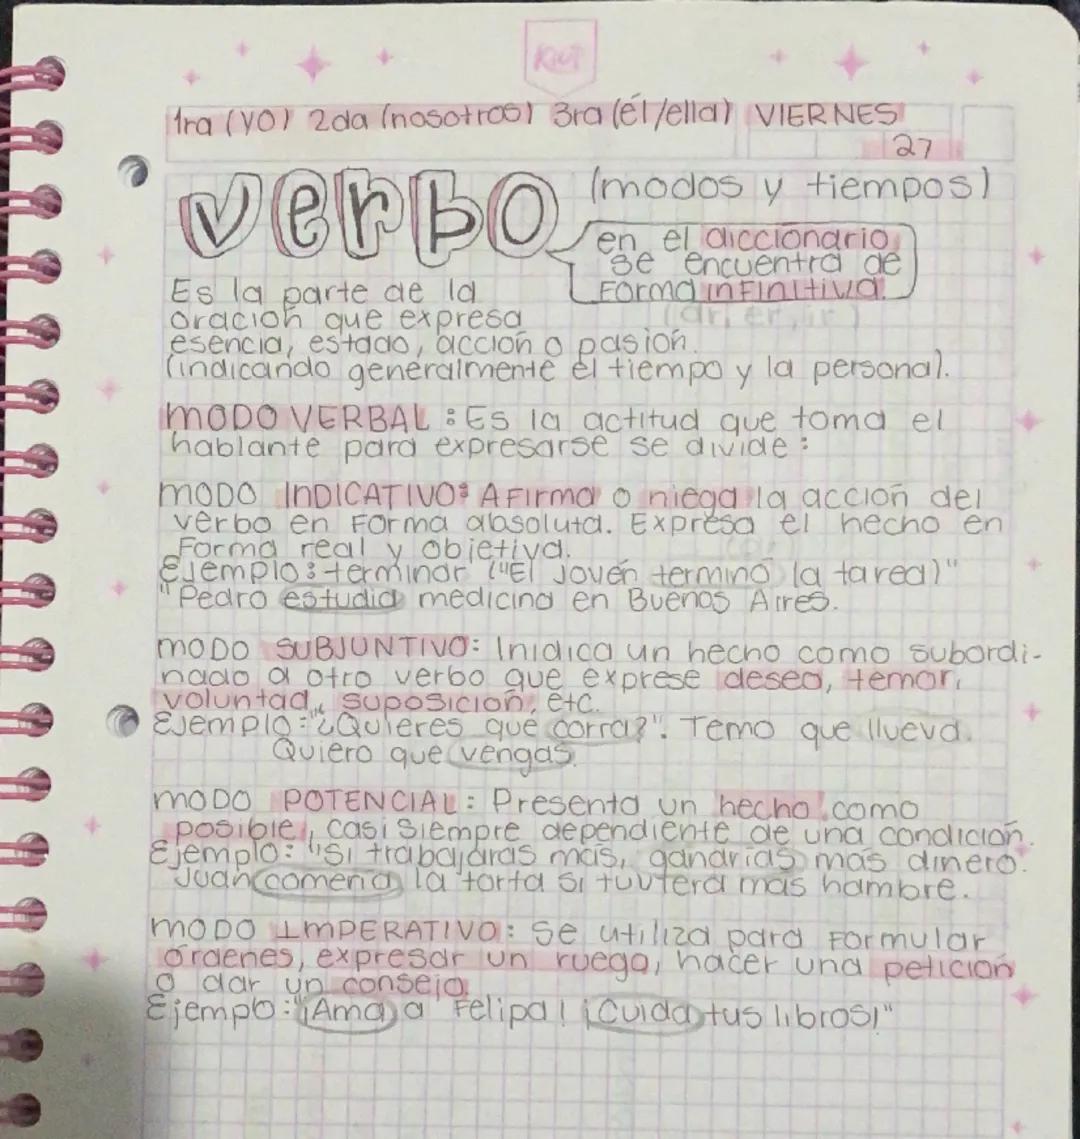 Kiut
1ra (YO) 2da (nosotros) 3ra (él/ella) VIERNES
27
verbo (modos y tiempos)
en el diccionario
se encuentra de
forma infinitiva
(ar, er, ir)
Es la parte de la
oración que expresa
esencia, estado, acción o pasión.
(indicando generalmente el tiempo y la persona).
MODO VERBAL: Es la actitud que toma el
hablante para expresarse se divide:
MODO INDICATIVO: Afirma o niega la acción del
verbo en forma absoluta. Expresa el hecho en
forma real y objetiva.
Ejemplo: terminar ("El joven terminó la tarea)"
"Pedro estudia medicina en Buenos Aires.
MODO SUBJUNTIVO: Inidica un hecho como subordi-
nado a otro verbo que exprese deseo, temor,
voluntad, suposición, etc.
Ejemplo: "¿Quieres que corra?". Temo que llueva.
Quiero que vengas.
MODO POTENCIAL: Presenta un hecho como
posible, casi siempre dependiente de una condición.
Ejemplo: "Si trabajaras más, ganarías más dinero.
Juan comería la torta si tuviera más hambre.
MODO IMPERATIVO: Se utiliza para formular
órdenes, expresar un ruego, hacer una petición
o dar un consejo.
Ejemplo: "¡Ama a Felipa! ¡Cuida tus libros!"